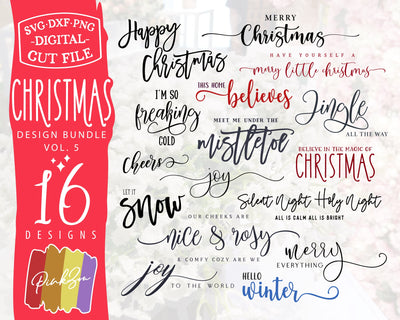 SVG·DXF·PNG
-DIGITAL-
CUT FILE
CHRISTMAS
DESIGN BUNDLE
VOL. 5
16
DESIGNS
PinkZou
Happy
Christmas
MERRY
Christmas
HAVE YOURSELF A
merry little christmas
I'M SO
freaking
COLD
THIS HOME
believes
Jingle
ALL THE WAY
MEET ME UNDER THE
mistletoe
Cheers
joy
BELIEVE IN THE MAGIC OF
CHRISTMAS
LET IT
snow
Silent Night Holy Night
ALL IS CALM ALL IS BRIGHT
OUR CHEEKS ARE
nice & rosy
& COMFY COZY ARE WE
merry
EVERYTHING
joy
TO THE WORLD
HELLO
winter